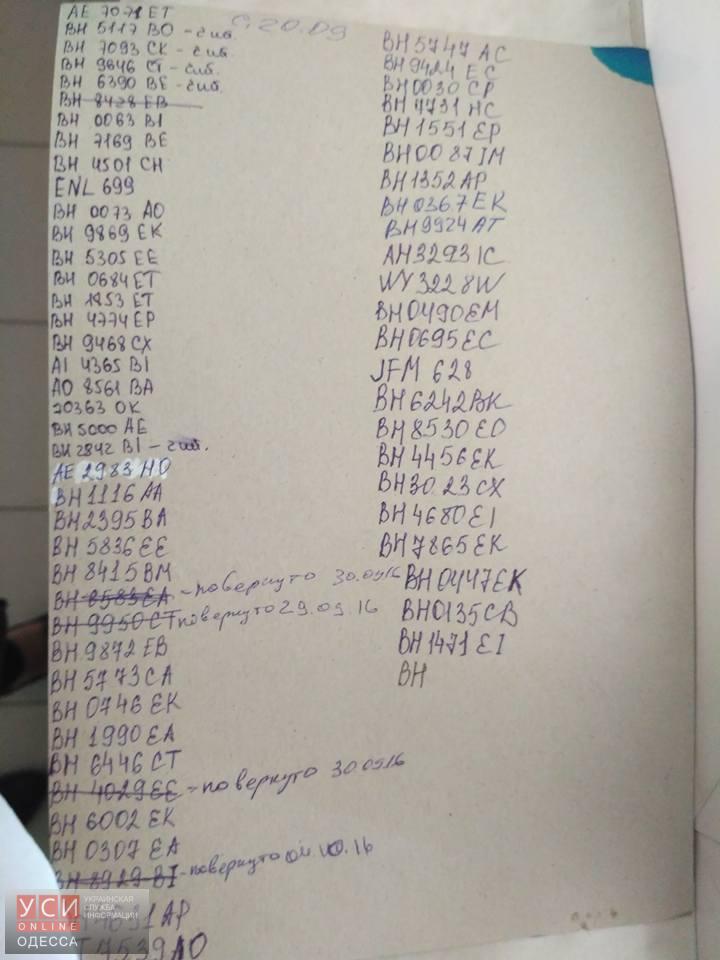 с 20.09
AE 7071 ET
BH 5117 BO - сиб.
BH 7093 CK - сиб.
BH 9646 CT - сиб.
BH 6390 BE - сиб.
BH 8428 EB
BH 0063 BI
BH 7169 BE
BH 4501 CH
ENL 699
BH 0073 AO
BH 9869 EK
BH 5305 EE
BH 0684 ET
BH 1853 ET
BH 4774 EP
BH 9468 CX
AI 4365 BI
AO 8561 BA
20363 OK
BH 5000 AE
BH 2842 BI - сиб.
AE 2983 HO
BH 1116 AA
BH 2395 BA
BH 5836 EE
BH 8415 BM
BH 8583 EA - повернуто 30.09 16
BH 9950 CT повернуто 29.09.16
BH 9872 EB
BH 5773 CA
BH 0746 EK
BH 1990 EA
BH 6446 CT
BH 4029 EE - повернуто 30.09.16
BH 6002 EK
BH 0307 EA
BH 8929 BI - повернуто 04.10.16
AP
7539 AO
BH 5747 AC
BH 9424 EC
BH 0030 CP
BH 4731 HC
BH 1551 EP
BH 0087 IM
BH 1352 AP
BH 0367 EK
BH 9924 AT
AH 3293 IC
WY 3228W
BH 0490 EM
BH 0695 EC
JFM 628
BH 6242 BK
BH 8530 EO
BH 4456 EK
BH 3023 CX
BH 4680 EI
BH 7865 EK
BH 0447 EK
BH 0135 CB
BH 1471 EI
BH
УСИ
ONLINE
ОДЕССА
УКРАИНСКАЯ
СЛУЖБА
ИНФОРМАЦИИ